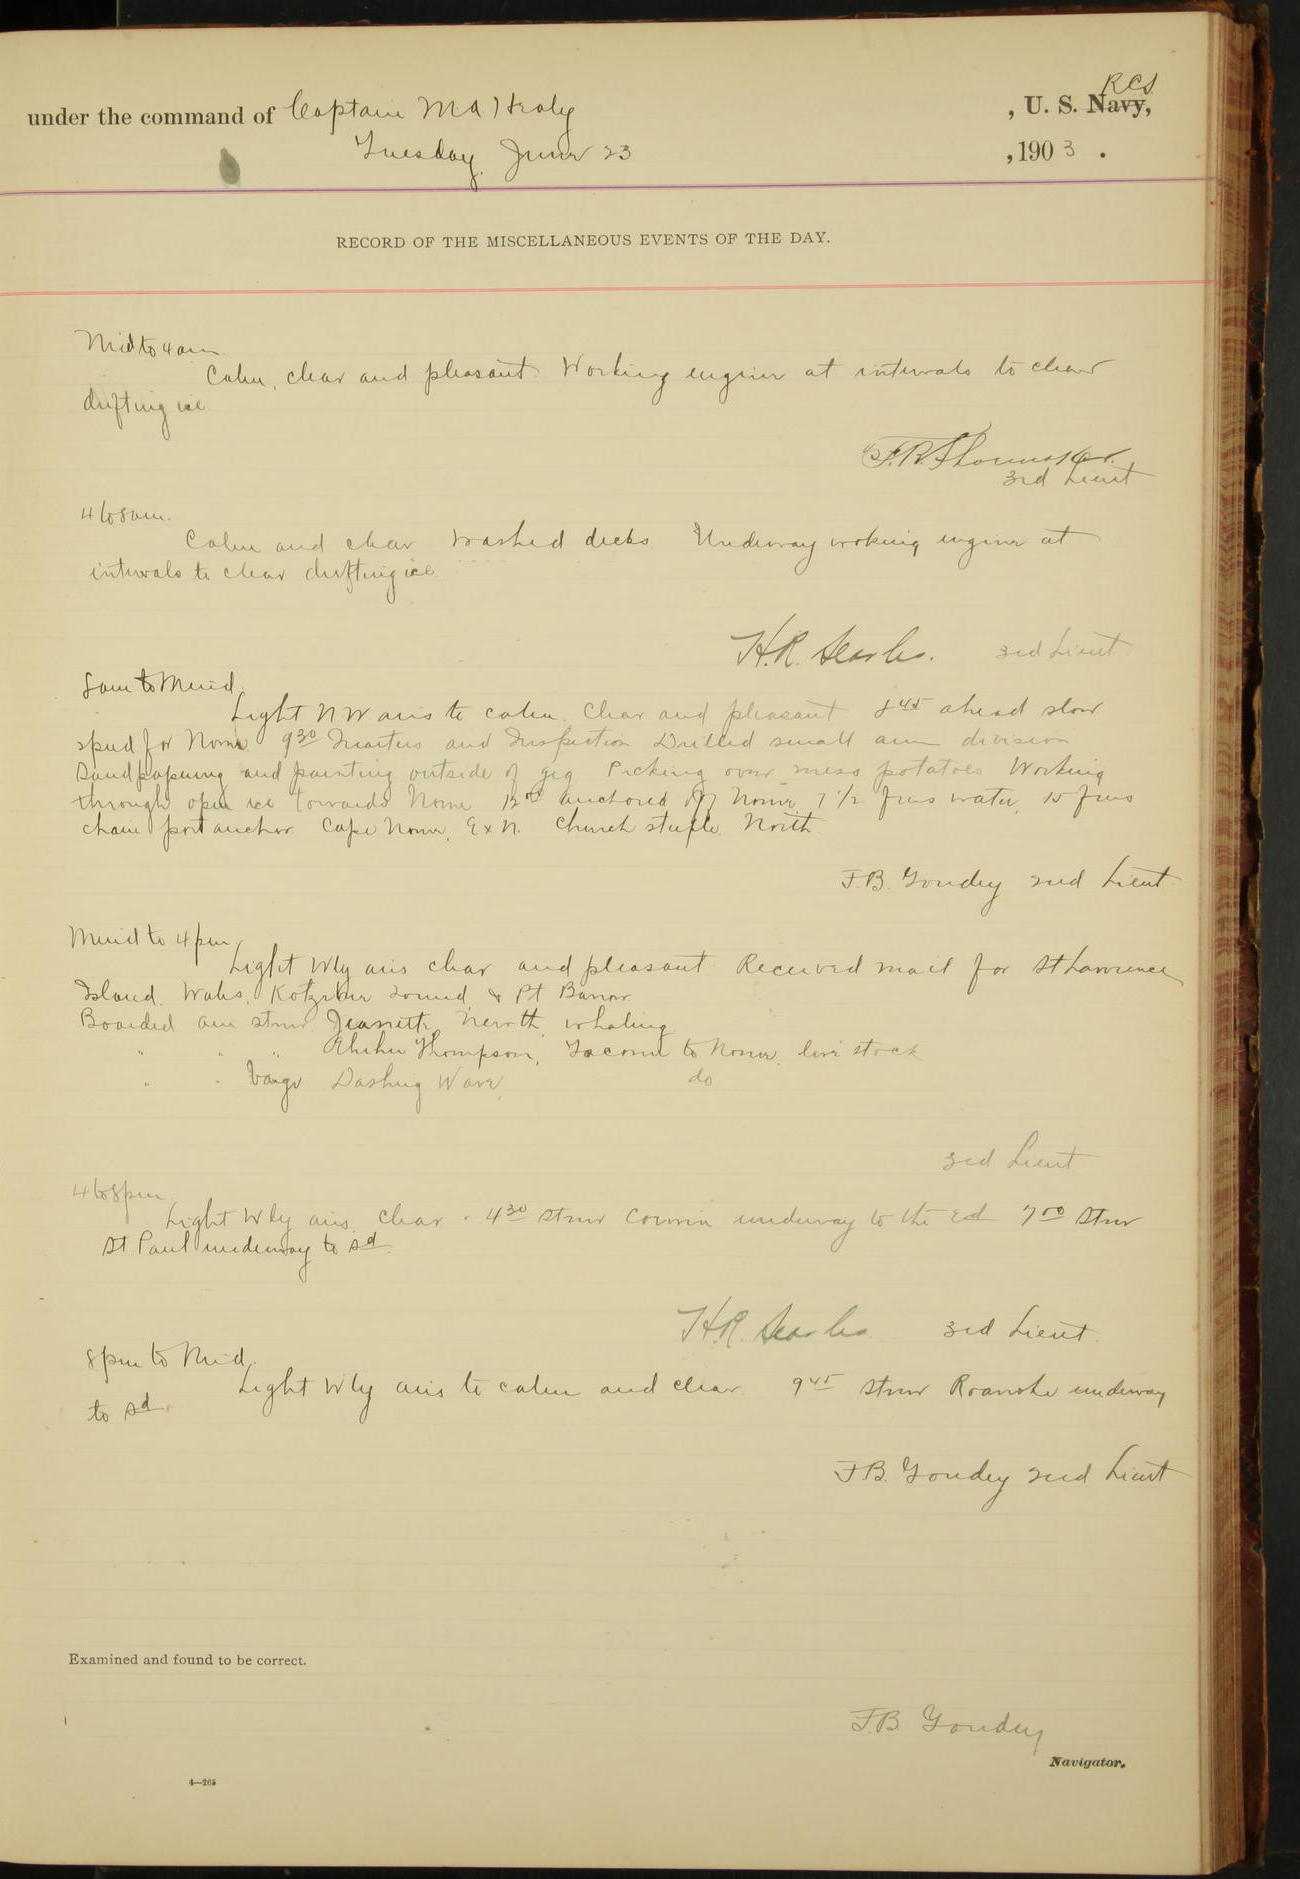 under the command of Captain M A Healy , U. S. Navy, RCS
Tuesday June 23 , 1903 .
RECORD OF THE MISCELLANEOUS EVENTS OF THE DAY.
Mid to 4 am
Calm, clear and pleasant. Working engine at intervals to clear
drifting ice
3rd Lieut
4 to 8 am.
Calm and clear Washed decks Underway working engine at
intervals to clear drifting ice
H.R. Searles. 3rd Lieut.
8 am to Merid.
Light NW airs to calm. Clear and pleasant 8 45 ahead slow
speed for Nome 9 30 Quarters and Inspection Drilled small arm division
Sandpapering and painting outside of gig Picking over mess potatoes Working
through open ice towards Nome 12 00 anchored off Nome, 7 1/2 fms water, 15 fms
chain port anchor. Cape Nome, E x N. Church steeple North
F.B. Goudey 2nd Lieut
Merid to 4 pm.
Light Wly airs clear and pleasant Received mail for St Lawrence
Island. Wales. Kotzebue Sound & Pt Barrow
Boarded am stmr. Jeanette, whaling
" " " Thompson, Tacoma to Nome, live stock
" " barge Dashing Wave, do
3rd Lieut
4 to 8 pm
Light Wly airs. Clear. 4 30 Stmr Corwin underway to the Ed 7 00 Stmr
St Paul underway to Sd.
H.R. Searles 3rd Lieut.
8 pm to Mid.
Light Wly airs to calm and clear. 9 45 Stmr Roanoke underway
to Sd.
F.B. Goudey 2nd Lieut
Examined and found to be correct.
F.B. Goudey
Navigator.
4—265